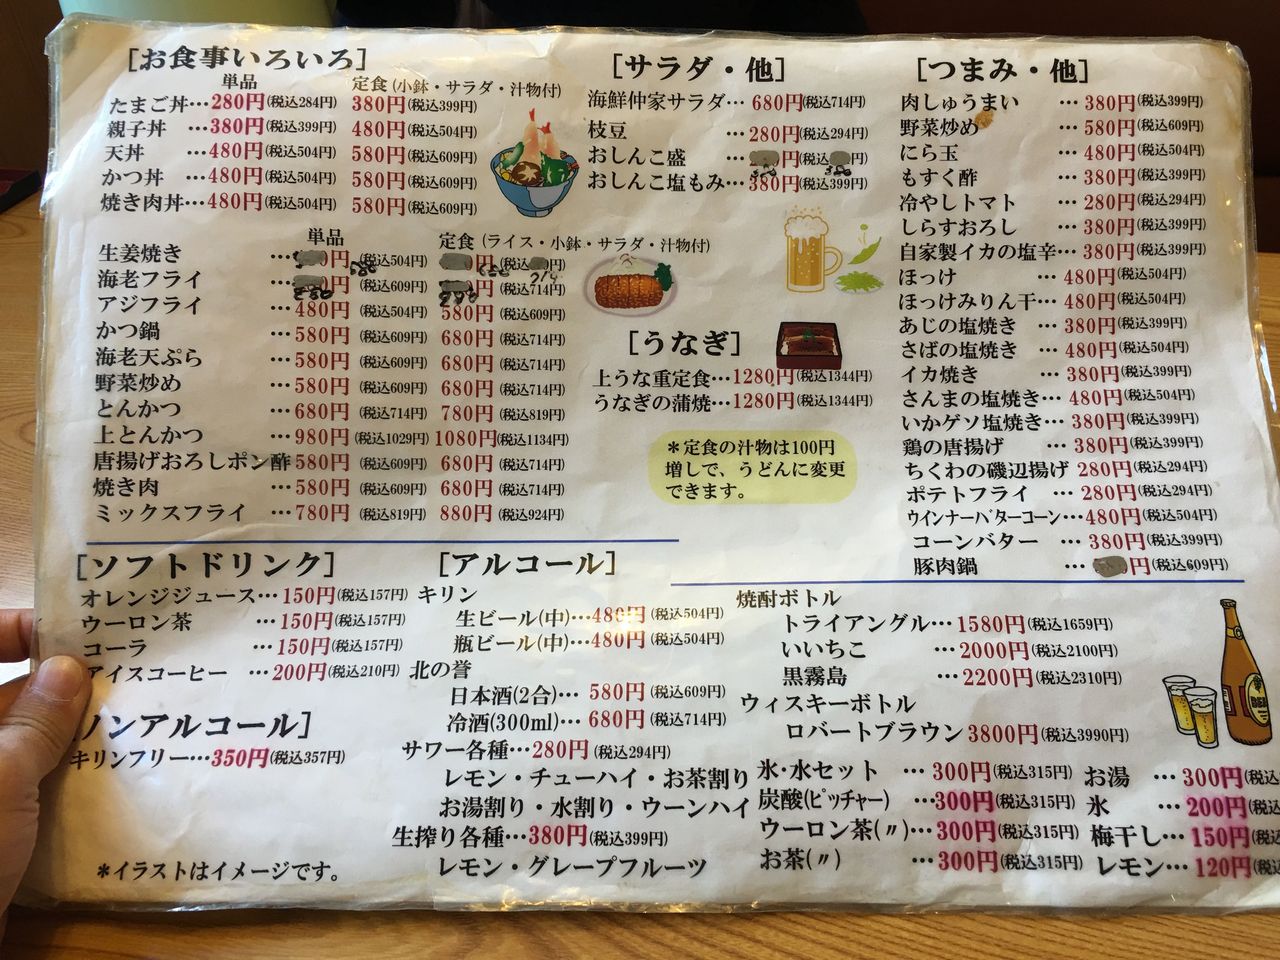 [お食事いろいろ]
単品 定食(小鉢・サラダ・汁物付)
たまご丼…280円(税込284円) 380円(税込399円)
親子丼 …380円(税込399円) 480円(税込504円)
天丼 …480円(税込504円) 580円(税込609円)
かつ丼 …480円(税込504円) 580円(税込609円)
焼き肉丼…480円(税込504円) 580円(税込609円)
単品 定食(ライス・小鉢・サラダ・汁物付)
生姜焼き …円(税込504円) 円(税込 円)
海老フライ …円(税込609円) 円(税込714円)
アジフライ …480円(税込504円) 580円(税込609円)
かつ鍋 …580円(税込609円) 680円(税込714円)
海老天ぷら …580円(税込609円) 680円(税込714円)
野菜炒め …580円(税込609円) 680円(税込714円)
とんかつ …680円(税込714円) 780円(税込819円)
上とんかつ …980円(税込1029円) 1080円(税込1134円)
唐揚げおろしポン酢 580円(税込609円) 680円(税込714円)
焼き肉 …580円(税込609円) 680円(税込714円)
ミックスフライ …780円(税込819円) 880円(税込924円)
[サラダ・他]
海鮮仲家サラダ…680円(税込714円)
枝豆 …280円(税込294円)
おしんこ盛 …円(税込 円)
おしんこ塩もみ…380円(税込399円)
[うなぎ]
上うな重定食…1280円(税込1344円)
うなぎの蒲焼…1280円(税込1344円)
*定食の汁物は100円
増しで、うどんに変更
できます。
[つまみ・他]
肉しゅうまい …380円(税込399円)
野菜炒め …580円(税込609円)
にら玉 …480円(税込504円)
もずく酢 …380円(税込399円)
冷やしトマト …280円(税込294円)
しらすおろし …380円(税込399円)
自家製イカの塩辛…380円(税込399円)
ほっけ …480円(税込504円)
ほっけみりん干…480円(税込504円)
あじの塩焼き …380円(税込399円)
さばの塩焼き …480円(税込504円)
イカ焼き …380円(税込399円)
さんまの塩焼き…480円(税込504円)
いかゲソ塩焼き…380円(税込399円)
鶏の唐揚げ …380円(税込399円)
ちくわの磯辺揚げ 280円(税込294円)
ポテトフライ …280円(税込294円)
ウインナーバターコーン…480円(税込504円)
コーンバター …380円(税込399円)
豚肉鍋 …円(税込609円)
[ソフトドリンク]
オレンジジュース…150円(税込157円)
ウーロン茶 …150円(税込157円)
コーラ …150円(税込157円)
アイスコーヒー …200円(税込210円)
ノンアルコール]
キリンフリー…350円(税込357円)
*イラストはイメージです。
[アルコール]
キリン
生ビール(中)…480円(税込504円)
瓶ビール(中)…480円(税込504円)
北の誉
日本酒(2合)…580円(税込609円)
冷酒(300ml)…680円(税込714円)
サワー各種…280円(税込294円)
レモン・チューハイ・お茶割り
お湯割り・水割り・ウーンハイ
生搾り各種…380円(税込399円)
レモン・グレープフルーツ
焼酎ボトル
トライアングル…1580円(税込1659円)
いいちこ …2000円(税込2100円)
黒霧島 …2200円(税込2310円)
ウィスキーボトル
ロバートブラウン 3800円(税込3990円)
氷・水セット …300円(税込315円)
炭酸(ピッチャー) …300円(税込315円)
ウーロン茶(〃)…300円(税込315円)
お茶(〃) …300円(税込315円)
お湯 …300円(税込
氷 …200円(税込
梅干し…150円(税込
レモン…120円(税込